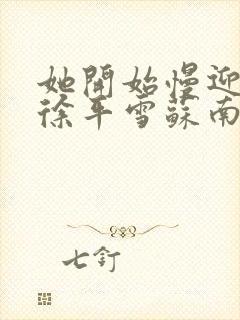 她開始慢迎
徐平雪蘇南
七釘